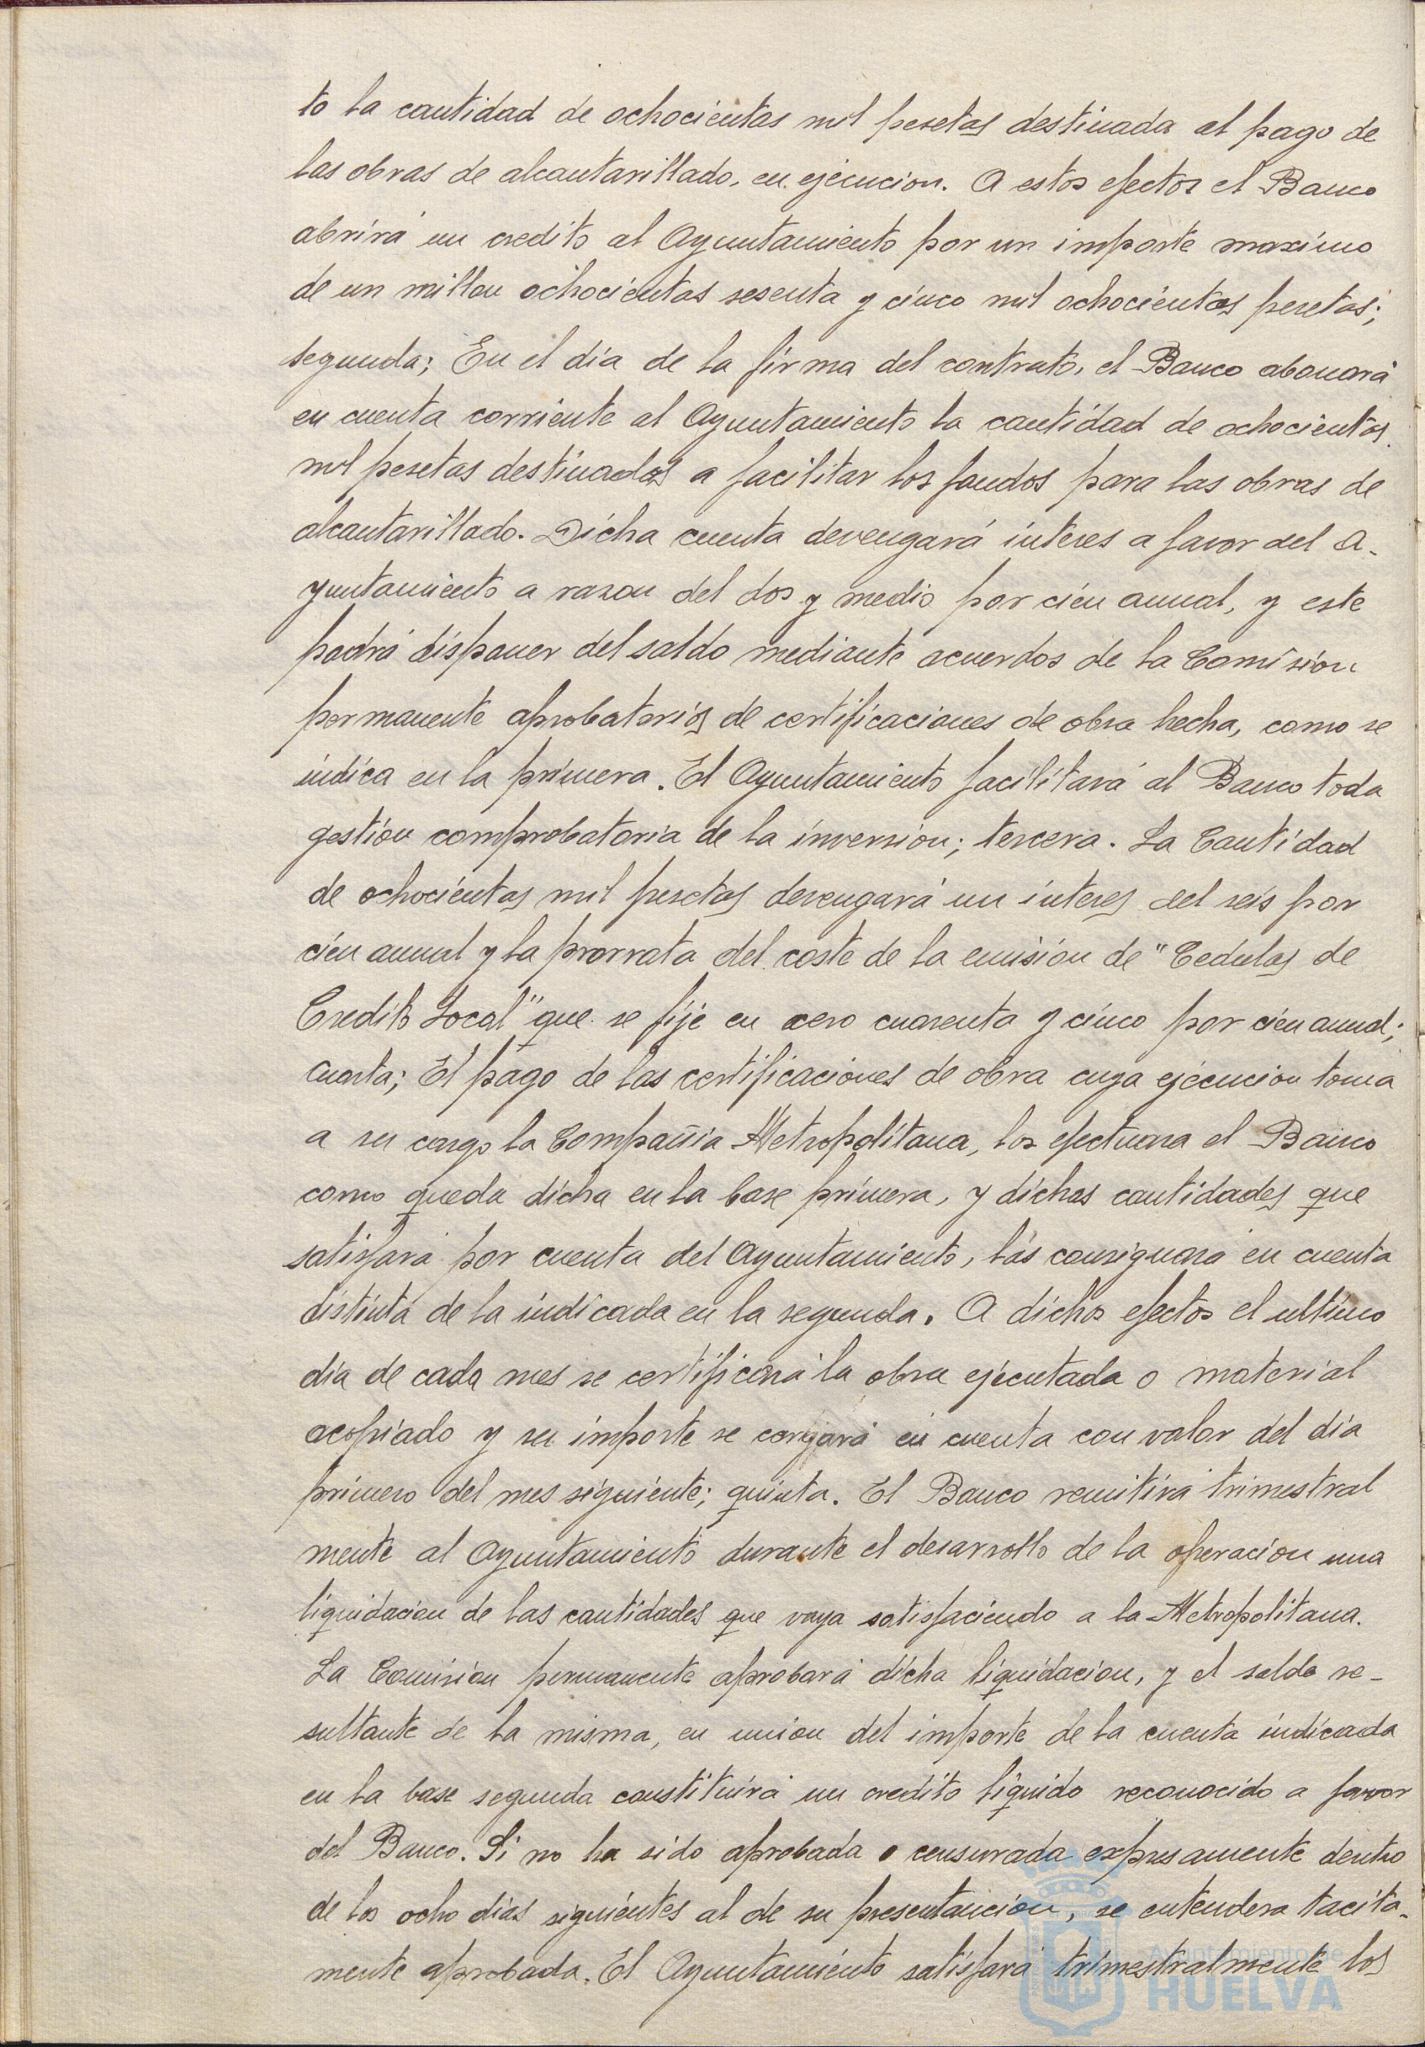 to la cantidad de ochocientas mil pesetas destinada al pago de
las obras de alcantarillado, en ejecucion. A estos efectos el Banco
abrirá un credito al Ayuntamiento por un importe maximo
de un millon ochocientas sesenta y cinco mil ochocientas pesetas;
segunda; En el dia de la firma del contrato, el Banco abonará
en cuenta corriente al Ayuntamiento la cantidad de ochocientas
mil pesetas destinadas a facilitar los fondos para las obras de
alcantarillado. Dicha cuenta devengará interes a favor del A-
yuntamiento a razon del dos y medio por cien anual, y este
podrá disponer del saldo mediante acuerdos de la Comision
permanente aprobatorios de certificaciones de obra hecha, como se
indica en la primera. El Ayuntamiento facilitará al Banco toda
gestion comprobatoria de la inversion; tercera. La Cantidad
de ochocientas mil pesetas devengará un interes del seis por
cien anual y la prorrata del coste de la emisión de "Cedulas de
Credito Local" que se fije en cero cuarenta y cinco por cien anual;
cuarta; El pago de las certificaciones de obra cuya ejecucion toma
a su cargo la Compañia Metropolitana, los efectuara el Banco
como queda dicha en la base primera, y dichas cantidades que
satisfará por cuenta del Ayuntamiento, las consignará en cuenta
distinta de la indicada en la segunda. A dichos efectos el ultimo
dia de cada mes se certificará la obra ejecutada o material
acopiado y su importe se cargará en cuenta con valor del dia
primero del mes siguiente; quinta. El Banco remitirá trimestral
mente al Ayuntamiento durante el desarrollo de la operacion una
liquidacion de las cantidades que vaya satisfaciendo a la Metropolitana.
La Comision permanente aprobará dicha liquidacion, y el saldo re-
sultante de la misma, en union del importe de la cuenta indicada
en la base segunda constituirá un credito liquido reconocido a favor
del Banco. Si no ha sido aprobada o censurada expresamente dentro
de los ocho dias siguientes al de su presentancion, se entendera tacita-
mente aprobada. El Ayuntamiento satisfará trimestralmente los
Ayuntamiento de
HUELVA